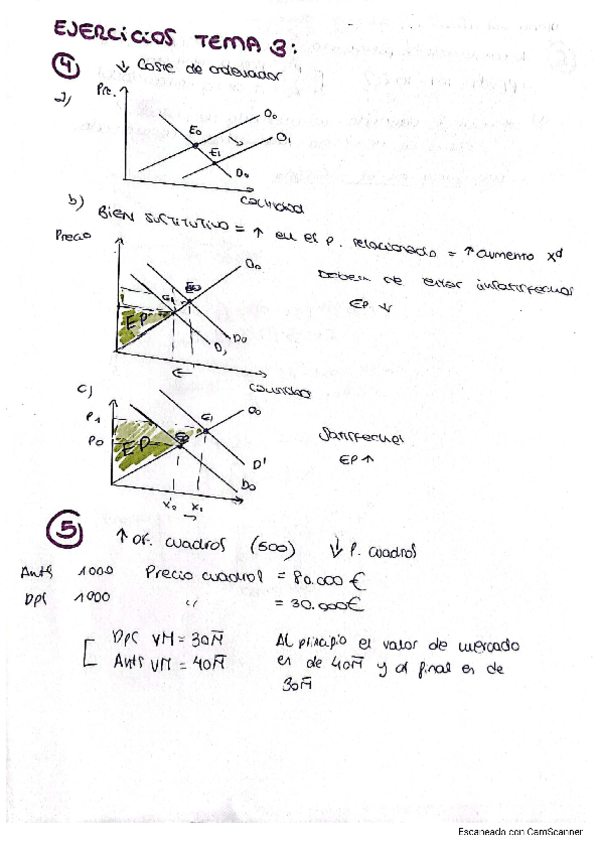 EJERCICIOS TEMA 3:
4 ↓ Coste de ordenador
a)
Pre.
O0
E0
O1
E1
D0
Cantidad
b) BIEN SUSTITUTIVO = ↑ en el p. relacionado = ↑ aumento Xd
Precio
O0
Deben de estar insatisfechos
E0
E1
EP ↓
EP
D0
D1
←
Cantidad
c)
O0
P1
E1
P0
E0
Satisfechos
EP
EP ↑
D'
D0
X0 X1
→
5 ↑ Of. cuadros (500) ↓ P. cuadros
Ants 1000 Precio cuadros = 80.000 €
Dps 1000 " = 30.000€
Dps VM = 30M
Ants VM = 40M
Al principio el valor de mercado
es de 40M y al final es de
30M
Escaneado con CamScanner